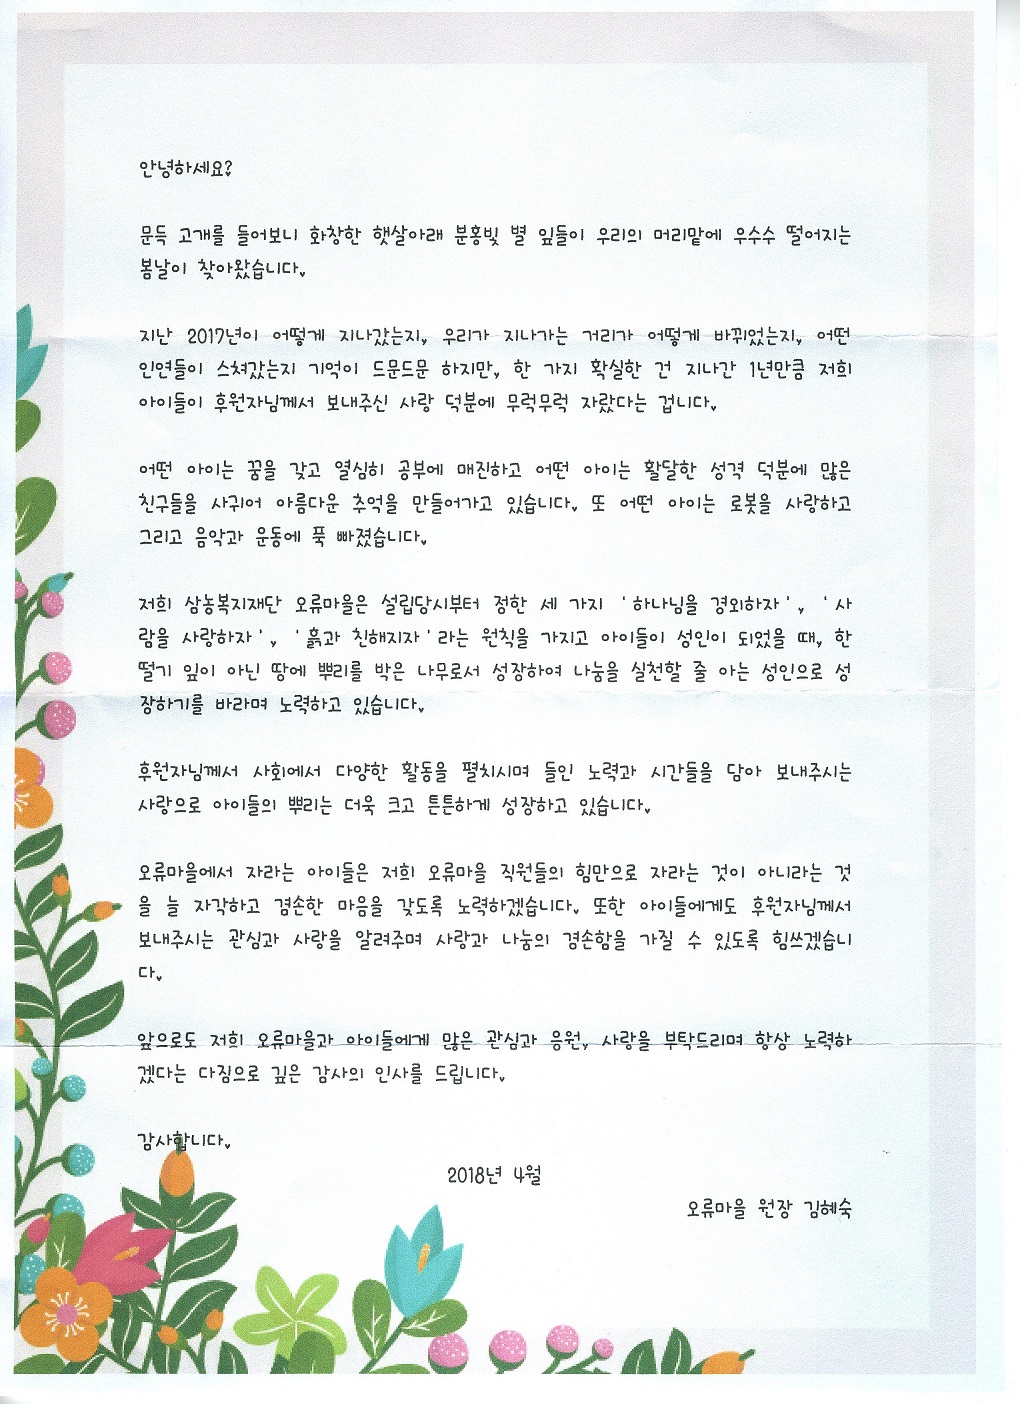 안녕하세요?
문득 고개를 들어보니 화창한 햇살아래 분홍빛 별 잎들이 우리의 머리맡에 우수수 떨어지는
봄날이 찾아왔습니다.
지난 2017년이 어떻게 지나갔는지, 우리가 지나가는 거리가 어떻게 바뀌었는지, 어떤
인연들이 스쳐갔는지 기억이 드문드문 하지만, 한 가지 확실한 건 지나간 1년만큼 저희
아이들이 후원자님께서 보내주신 사랑 덕분에 무럭무럭 자랐다는 겁니다.
어떤 아이는 꿈을 갖고 열심히 공부에 매진하고 어떤 아이는 활달한 성격 덕분에 많은
친구들을 사귀어 아름다운 추억을 만들어가고 있습니다. 또 어떤 아이는 로봇을 사랑하고
그리고 음악과 운동에 푹 빠졌습니다.
저희 삼농복지재단 오류마을은 설립당시부터 정한 세 가지 '하나님을 경외하자', '사
람을 사랑하자', '흙과 친해지자'라는 원칙을 가지고 아이들이 성인이 되었을 때, 한
떨기 잎이 아닌 땅에 뿌리를 박은 나무로서 성장하여 나눔을 실천할 줄 아는 성인으로 성
장하기를 바라며 노력하고 있습니다.
후원자님께서 사회에서 다양한 활동을 펼치시며 들인 노력과 시간들을 담아 보내주시는
사랑으로 아이들의 뿌리는 더욱 크고 튼튼하게 성장하고 있습니다.
오류마을에서 자라는 아이들은 저희 오류마을 직원들의 힘만으로 자라는 것이 아니라는 것
을 늘 자각하고 겸손한 마음을 갖도록 노력하겠습니다. 또한 아이들에게도 후원자님께서
보내주시는 관심과 사랑을 알려주며 사랑과 나눔의 겸손함을 가질 수 있도록 힘쓰겠습니
다.
앞으로도 저희 오류마을과 아이들에게 많은 관심과 응원, 사랑을 부탁드리며 항상 노력하
겠다는 다짐으로 깊은 감사의 인사를 드립니다.
감사합니다.
2018년 4월
오류마을 원장 김혜숙